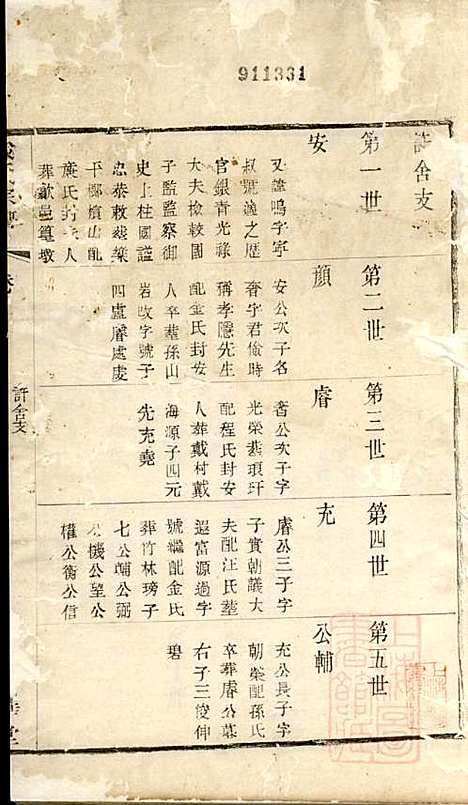 911331
許舍支
第一世
安
又諱鳴字寧
叔號逸之歷
官銀青光祿
大夫檢較國
子監監察御
史上柱國諡
忠泰敕葬樂
平鄉 山配
龐氏 夫人
葬歙邑篁墩
第二世
顏
安公次子名
奢字君儉時
稱孝隱先生
配金氏封安
人卒葬孫山
岩改字號子
四盧 處虔
第三世
睿
奢公次子字
光榮葬琅玕
配程氏封安
人葬戴村戴
海源子四元
先充堯
第四世
充
睿公三子字
子實朝議大
夫配汪氏葬
遐富源過字
號繼配金氏
葬竹林塝子
七公輔公弼
公機公望公
權公衡公信
第五世
公輔
充公長子字
朝榮配孫氏
卒葬睿公墓
右子三俊伸
碧
許舍支
上海圖書館藏